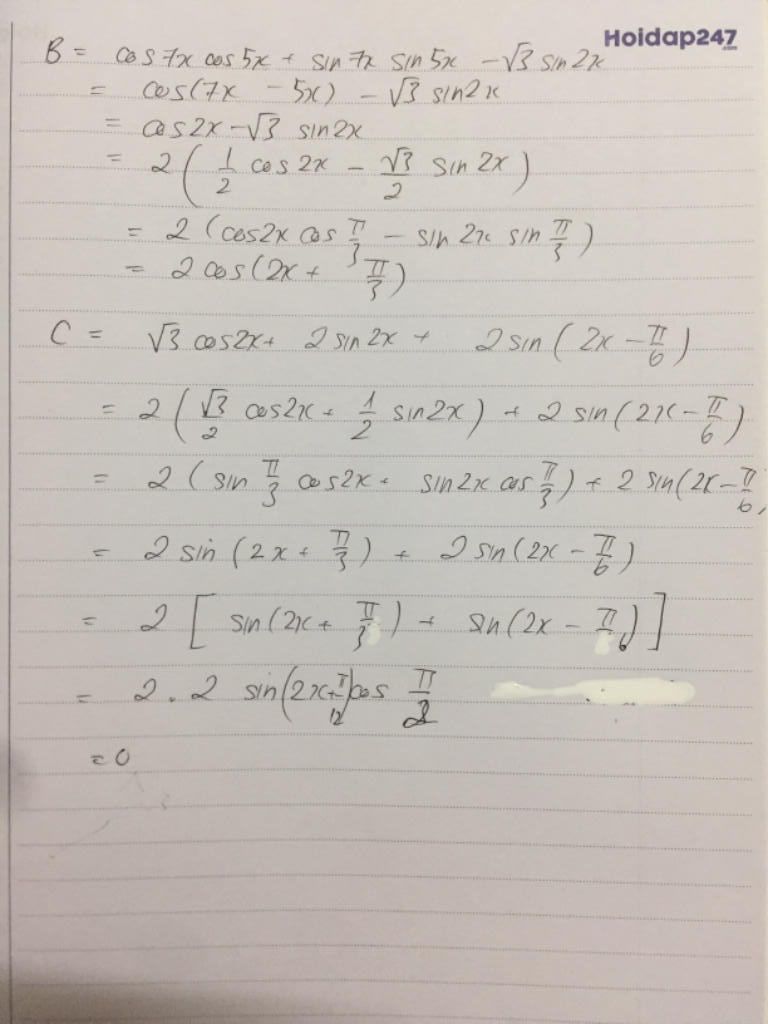 Hoidap247
B = cos7x cos5x + sin7x sin5x - √3 sin2x
= cos(7x - 5x) - √3 sin2x
= cos2x - √3 sin2x
= 2(1/2 cos2x - √3/2 sin2x)
= 2(cos2x cos π/3 - sin2x sin π/3)
= 2cos(2x + π/3)
C = √3 cos2x + 2sin2x + 2sin(2x - π/6)
= 2(√3/2 cos2x + 1/2 sin2x) + 2sin(2x - π/6)
= 2(sin π/3 cos2x + sin2x cos π/3) + 2sin(2x - π/6,
= 2sin(2x + π/3) + 2sin(2x - π/6)
= 2[sin(2x + π/3) + sin(2x - π/6)]
= 2.2 sin(2x + π/12)cos π/2
= 0